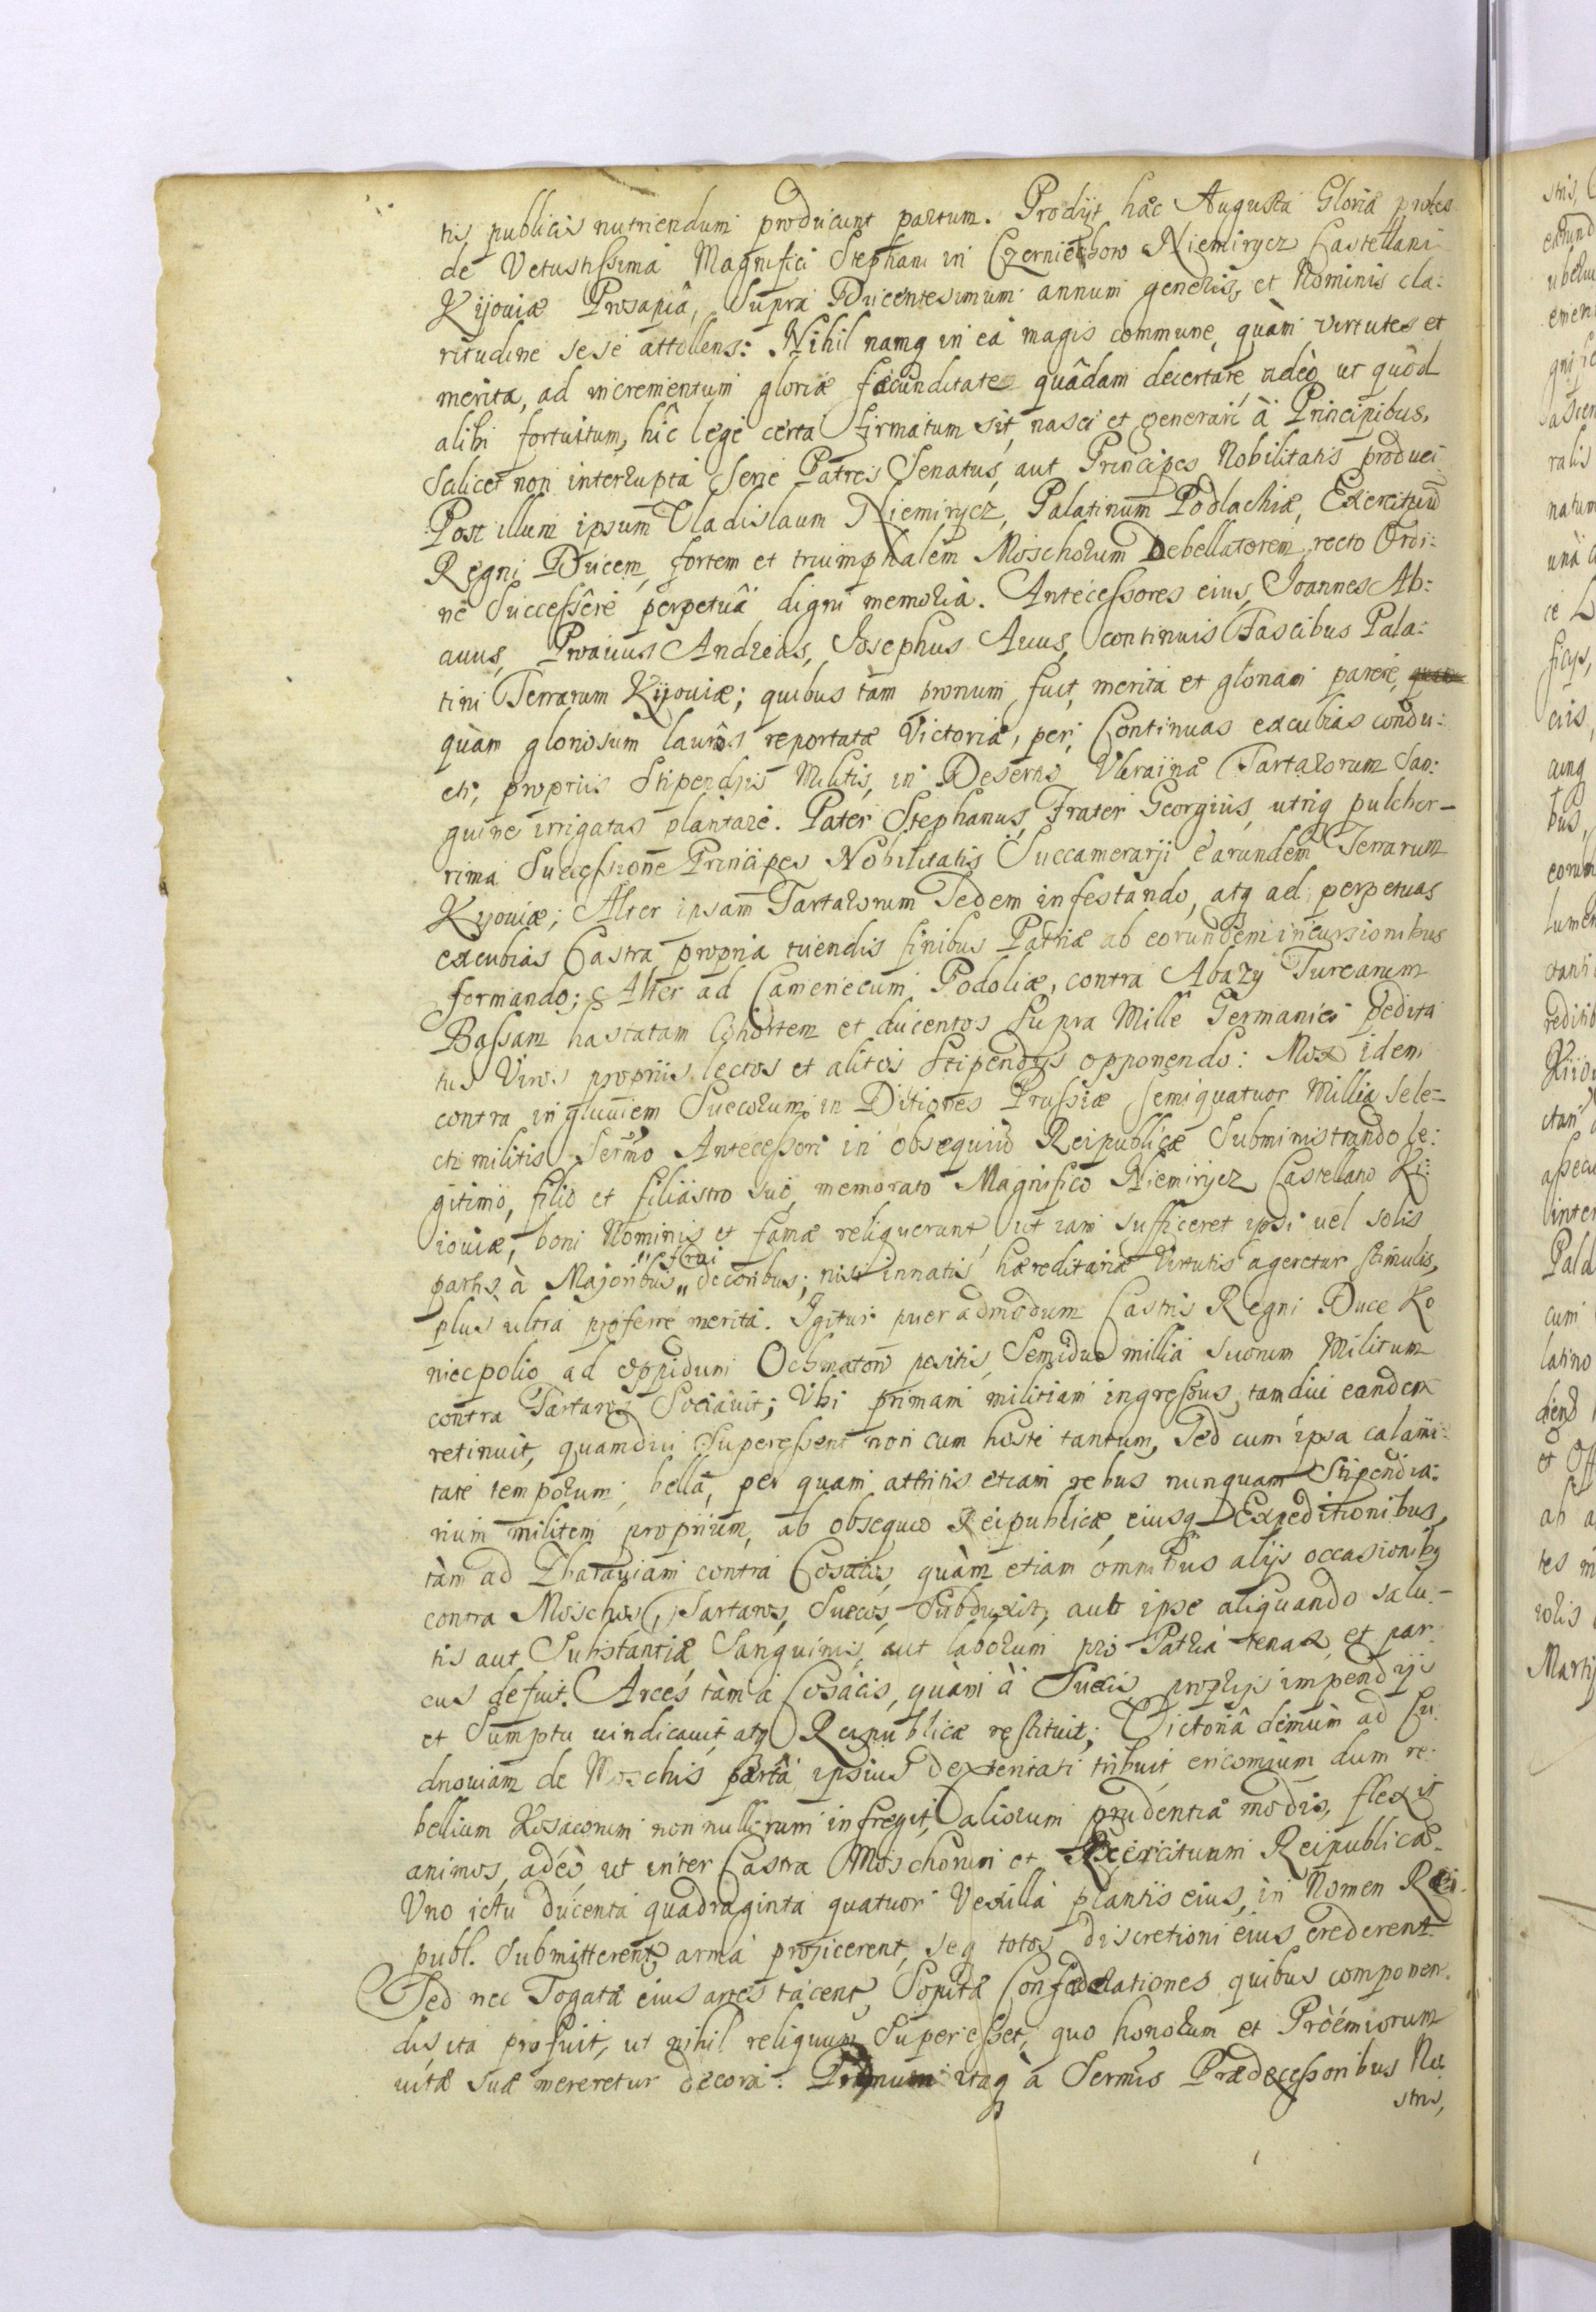 tis publicis nutriendum producunt partum. Prodijt hæc Augusta Gloriæ proles
de Vetustissima Magnifici Stephani in Czerniechow Niemirycz Castellani
Kijoviæ Prosapiâ, supra Ducentesimum annum generis, et Nominis cla:
ritudine sese attollens: Nihil namq in eâ magis commune, quàm virtutes et
merita, ad incrementum gloriæ fæcunditate quâdam decertare, adeò ut quod
alibi fortuitum, hîc lege certa firmatum sit, nasci et generari à Principibus,
Scilicet non interrupta serie Patres Senatus, aut Principes Nobilitatis produci
Post illum ipsum Vladislaum Niemirycz, Palatinum Podlachiæ, Exercituũ
Regni Ducem, fortem et triumphalem Moschorum Debellatorem, recto Ordi:
ne Successêre perpetuâ digni memoriâ. Antecessores eius, Joannes Ab:
avus, Proavus Andreas, Josephus Avus, continuis Fascibus Pala:
tini Terrarum Kijoviæ; quibus tam pronum fuit, merita et gloriam parere,
quàm gloriosum lauros reportatæ Victoriæ, per Continuas excubias condu:
cti, propriis Stipendijs Militis, in Desertis Ukrainæ Tartarorum San:
guine irrigatas plantare. Pater Stephanus, Frater Georgius, utriq pulcher-
rima Successione Principes Nobilitatis Succamerarij earundem Terrarum
Kyoviæ; Alter ipsam Tartarorum Sedem infestando, atq ad perpetuas
excubias Castra propria tuendis finibus Patriæ ab eorundem incursionibus
formando; Alter ad Camenecum Podoliæ, contra Abazy Turcarum
Bassam hastatam Cohortem et ducentos supra Mille Germanici pedita
tus Viros propriis lectos et alitos Stipendijs opponendo: Mox idem
contra ingluviem Suecorum in Ditiones Prussiæ semiquatuor Millia sele=
cti militis Serm̃o Antecessori in obsequiũ Reipublicæ Subministrando le:
gitimo, filio et filiastro suo, memorato Magnifico Niemirycz Castellano Ki:
ioviæ, boni Nominis et famæ reliquerunt ut iam sufficeret ipsi vel solis
partis à Majoribus " frui " decoribus; nisi innatis hæreditariæ Virtutis ageretur stimulis,
plus ultra proferre merita. Igitur puer admodum Castris Regni Duce Ko
niecpolio ad oppidum Ochmatow positis, Semiduo millia suorum Militum
contra Tartaros Sociavit; Ubi primam militiam ingressus, tamdiu eandem
retinuit, quamdiu Superessent non cum hoste tantum, Sed cum ipsa calami:
tate temporum, bella, per quam attritis etiam rebus nunquam Stipendia:
rium militem proprium, ab obsequio Reipublicæ, eiusq Expeditionibus,
tàm ad Zbaraviam contra Cosacos, quàm etiam omnibus alijs occasionibq
contra Moschos, Tartaros, Suecos, Subduxit, aut ipse aliquando salu:
tis aut Substantiæ Sanguinis, aut laborum pro Patria tenax et par:
cus defuit. Arces tàm à Cosacis, quàm à Suecis, proprijs impendijs
et Sumptu vindicavit, atq Reipublicæ restituit; Victoriâ demùm ad Cu:
dnoviam de Moschis partâ, ipsius dexteritati tribuit encomium dum re:
bellium Kosacorum nonnullorum infregit, aliorum prudentiæ modis, flexit
animos, adeò, ut inter Castra Moschorum et Exercituum Reipublicæ
Uno ictu ducenta quadraginta quatuor Vexilla plantis eius, in Nomen Rei:
publ. Submitterent, arma projicerent, seq totos discretioni eius crederent.
Sed nec Togatæ eius artes tacent, Sopitæ Confæderationes quibus componen:
dis ita profuit, ut nihil reliquum Superesset, quo honorum et Prœmiorum
vitæ suæ mereretur decora. Primum itaq à Serm̃is Prædecessoribus No:
stris,